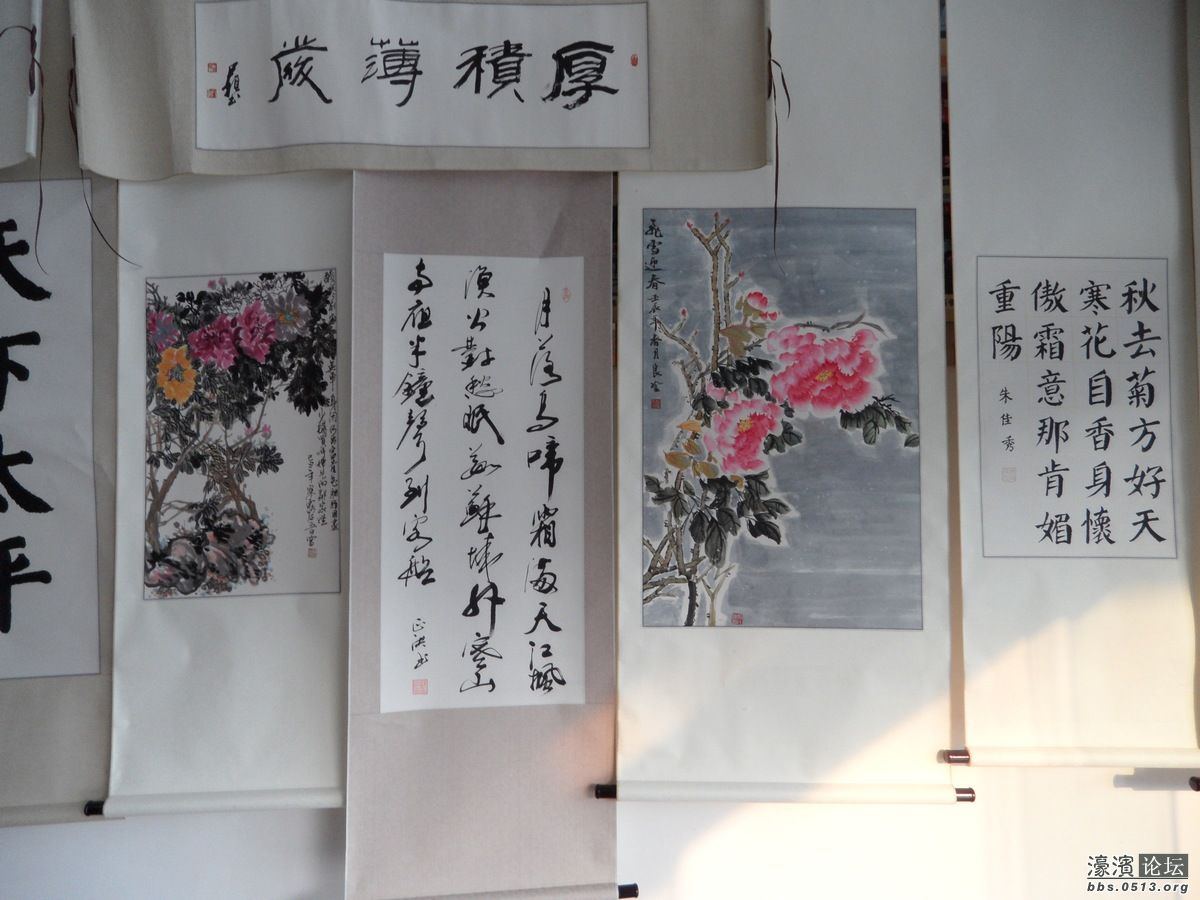 厚積薄發
天下太平
月落烏啼霜滿天江楓
漁火對愁眠姑蘇城外寒山
寺夜半鐘聲到客船
飛雪迎春 壬辰年春月
秋去菊方好天
寒花自香身懷
傲霜意那肯媚
重陽
朱佳秀
濠濱论坛
bbs.0513.org